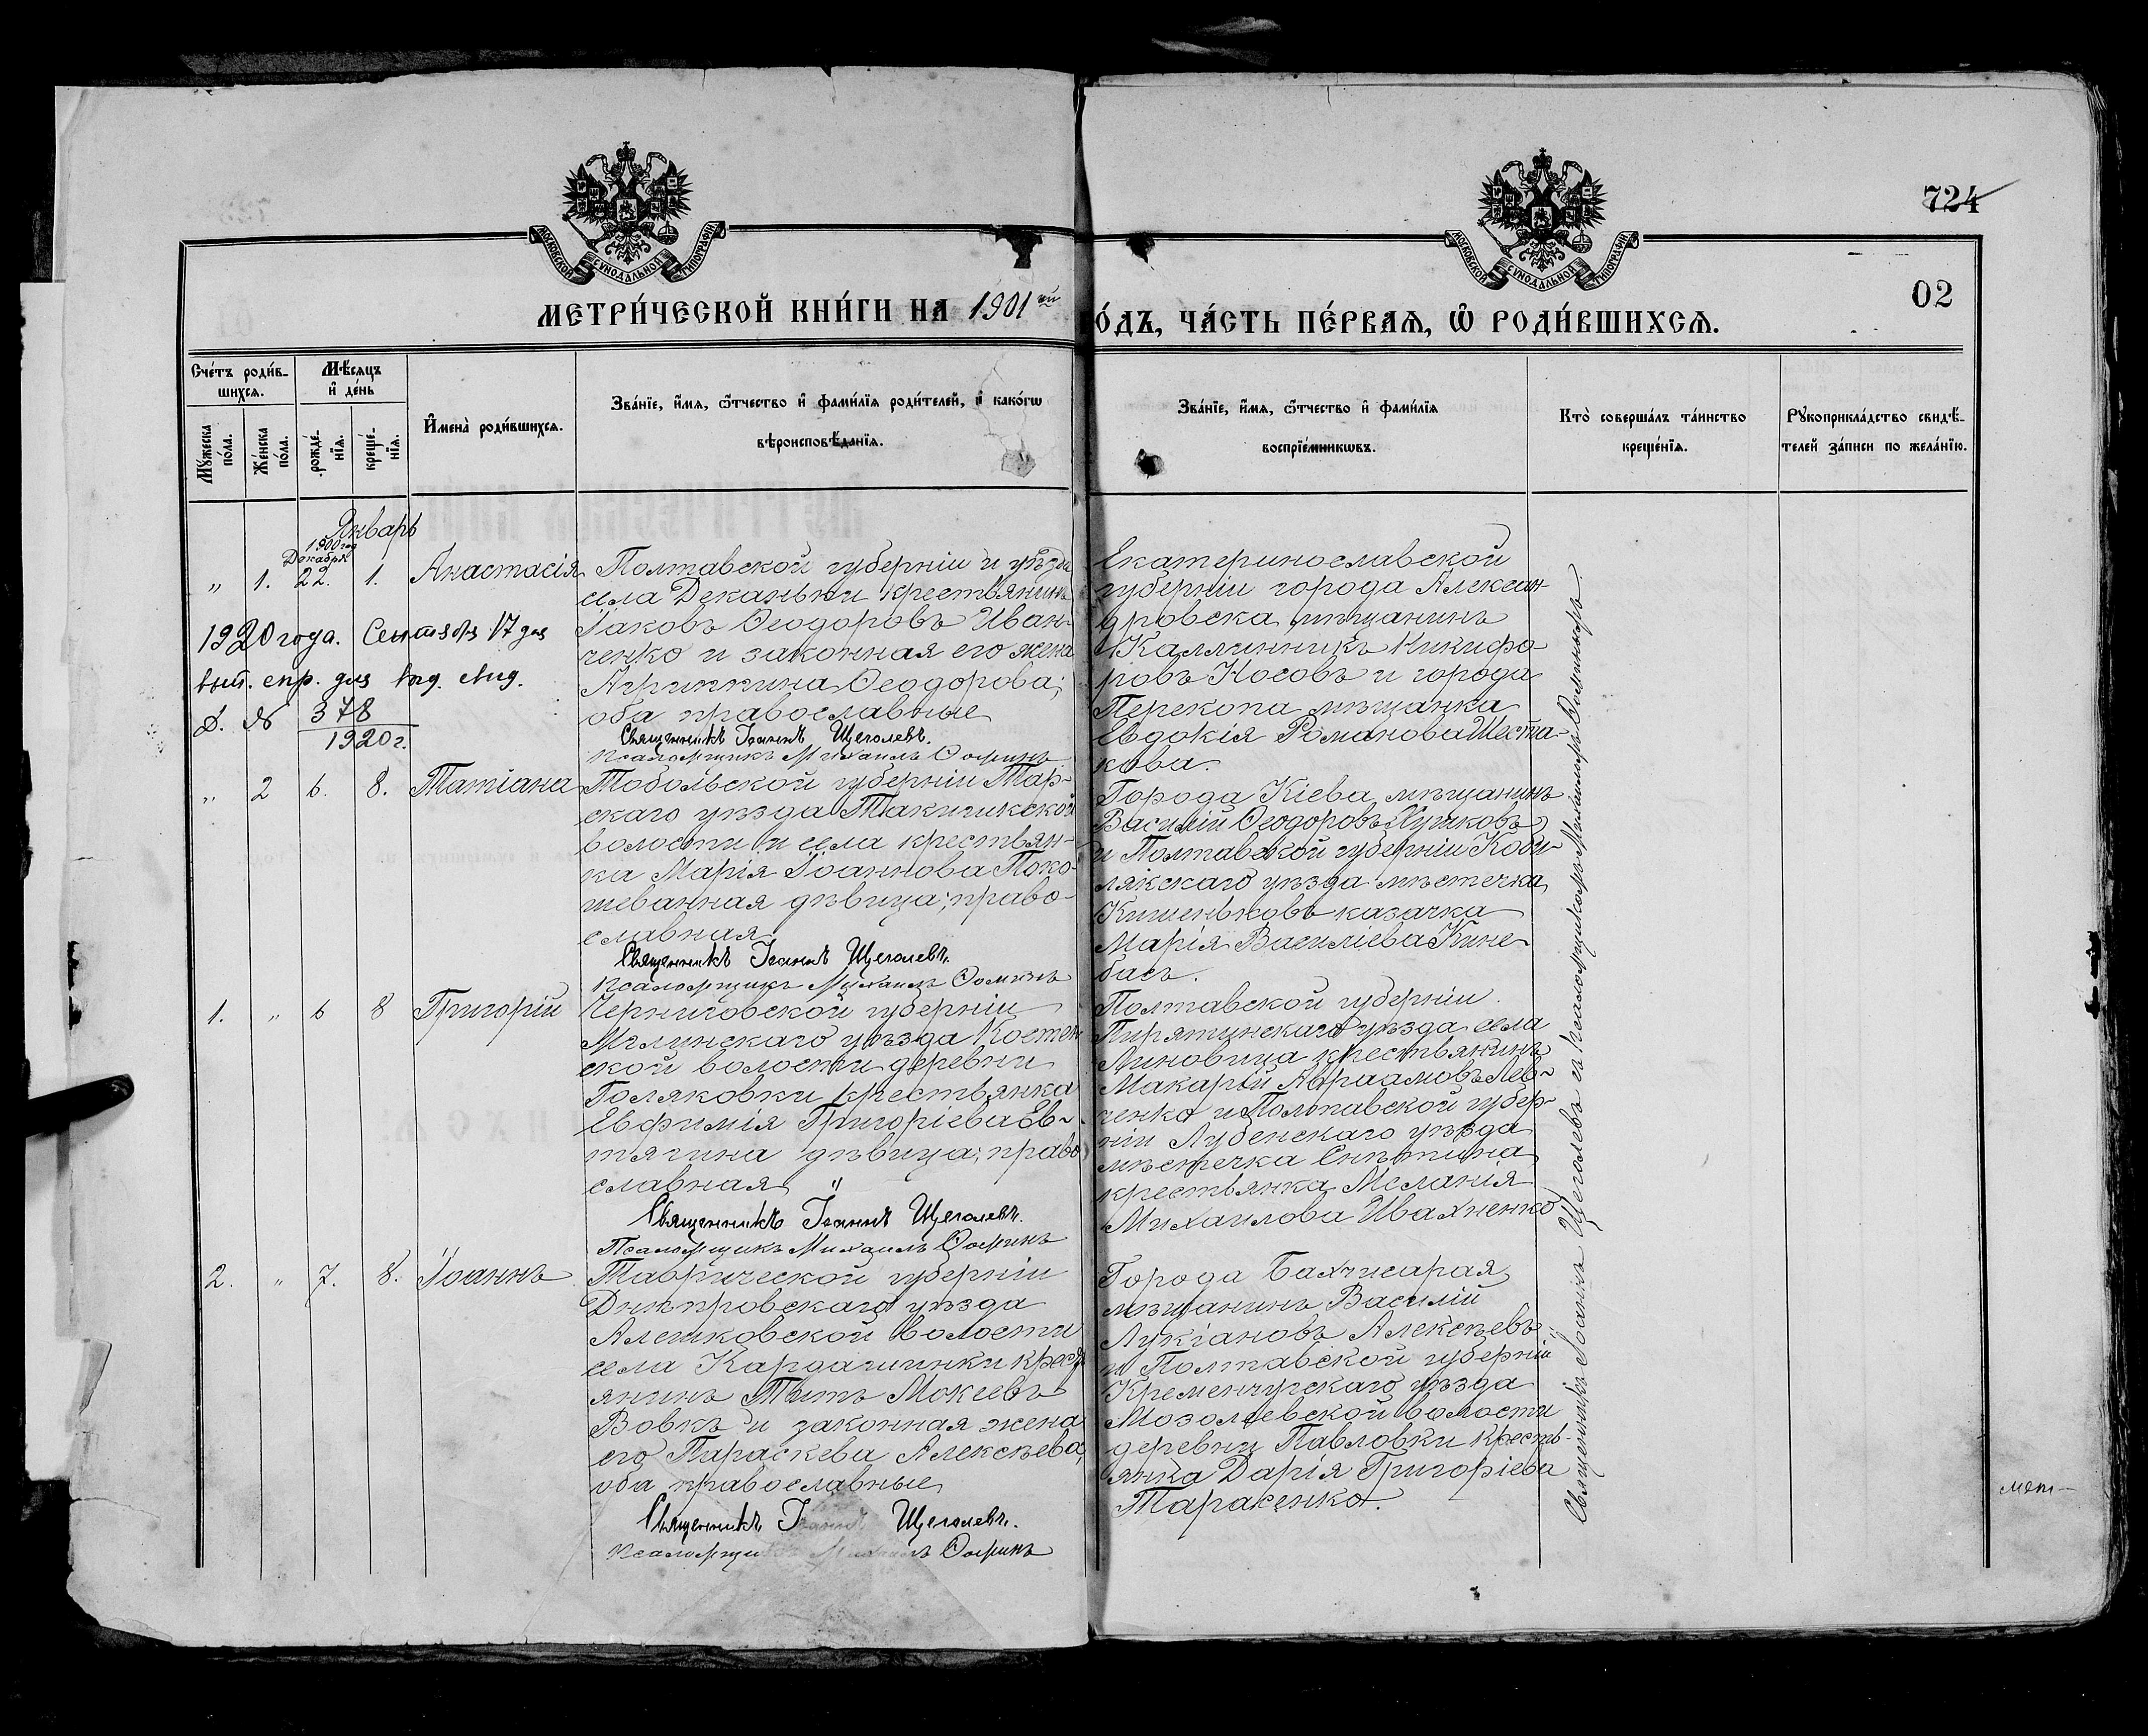 724
02
МОСКОВСКОЙ СѴНОДАЛЬНОЙ ТИПОГРАФІИ
МОСКОВСКОЙ СѴНОДАЛЬНОЙ ТИПОГРАФІИ
МЕТРИ́ЧЕСКОЙ КНИ́ГИ НА 1901ый
О́ДЪ, ЧА́СТЬ ПЕ́РВАѦ, Ѡ҆ РОДИ́ВШИХСѦ.
Сче́тъ роди́в-
шихсѧ.
Мѣ́сѧцъ
и҆ де́нь
Мꙋ́жеска
по́ла.
Же́нска
по́ла.
рожде́-
нїѧ.
креще́-
нїѧ.
И҆мена̀ роди́вшихсѧ.
Зва́нїе, и҆́мѧ, ѻ҆́тчество и҆ фами́лїѧ роди́телей, и҆ како́гѡ
вѣроисповѣ́данїѧ.
Зва́нїе, и҆́мѧ, ѻ҆́тчество и҆ фами́лїѧ
воспрїе́мникѡвъ.
Кто̀ соверша́лъ та́инство
креще́нїѧ.
Рꙋкоприкла́дство свидѣ́-
телей за́писи по жела́нїю.
Январь
1900 год
Декабря
" 1. 22. 1. Анастасія
Полтавской губерніи и уѣзда
села Диканьки крестьянинъ
Іаковъ Ѳеодоровъ Иван-
ченко и законная его жена
Агриппина Ѳеодорова;
оба православные
Священникъ Іоаннъ Щеголевъ.
Псаломщикъ Михаилъ Ѳоминъ
1920 года. Сентября 17 дня
вып. спр. для
д. № 378
1920 г.
Екатеринославской
губерніи города Алексан-
дровска мѣщанинъ
Каллинникъ Никифо-
ровъ Носовъ и города
Перекопа мѣщанка
Евдокія Романова Шеста-
кова.
" 2 6. 8. Татіана
Тобольской губерніи Тар-
скаго уѣзда
волости и села крестьян-
ка Марія Іоаннова
дѣвица; право-
славная
Священникъ Іоаннъ Щеголевъ.
Псаломщикъ Михаилъ Ѳоминъ
Города Кіева мѣщанинъ
Василій Ѳеодоровъ
и Полтавской губерніи Кобе-
лякскаго уѣзда мѣстечка
Кишеньковъ казачка
Марія Василіева Кине-
басъ.
1. " 6 8 Григорій
Черниговской губерніи
Мглинскаго уѣзда Костен-
ской волости деревни
Голяковки крестьянка
Евфимія Григоріева Ев-
тягина дѣвица; право
славная "
Священникъ Іоаннъ Щеголевъ.
Псаломщикъ Михаилъ Ѳоминъ
Полтавской губерніи
Пирятинскаго уѣзда села
Линовица крестьянинъ
Макарій Авраамовъ Лев-
ченко и Полтавской губер-
ніи Лубенскаго уѣзда
мѣстечка Снѣтина
крестьянка Меланія
Михаилова Ивахненко
2. " 7. 8. Іоаннъ
Таврической губерніи
Днѣпровскаго уѣзда
Алешковской волости
села Кардашинки крест
янинъ Титъ Мокіевъ
Вовкъ и законная жена
его Параскева Алексѣева,
оба православные
Священникъ Іоаннъ Щеголевъ.
Псаломщикъ Михаилъ Ѳоминъ
Города Бахчисарая
мѣщанинъ Василій
Лукіановъ Алексѣевъ
и Полтавской губерніи
Кременчугскаго уѣзда
Мозолѣевской волости
деревни Павловки кресть-
янка Дарія Григоріева
Тарасенко.
Священникъ Іоаннъ Щеголевъ съ псаломщикомъ Михаиломъ Ѳоминымъ.
мет-